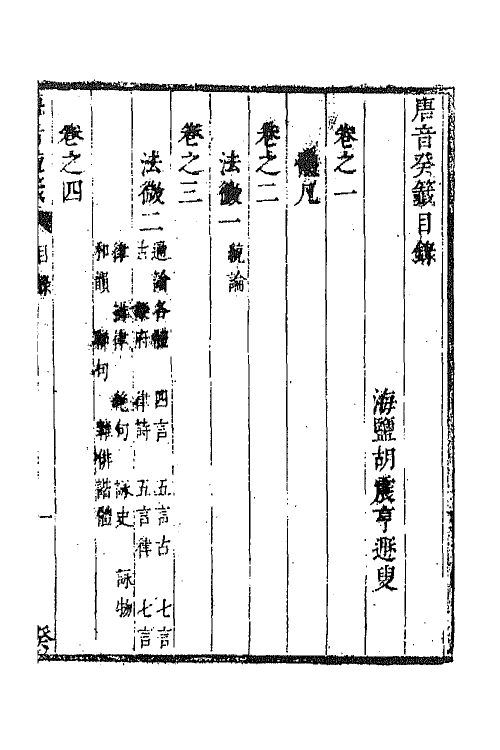 唐音癸籤目錄
海鹽胡震亨遯叟
卷之一
體凡
卷之二
法微一 統論
卷之三
法微二 通論各體 四言 五言古 七言
古 樂府 律詩 五言律 七言
律 排律 絶句 詠史 詠物
和韻 聯句 雜俳諧體
卷之四
目錄
一
癸